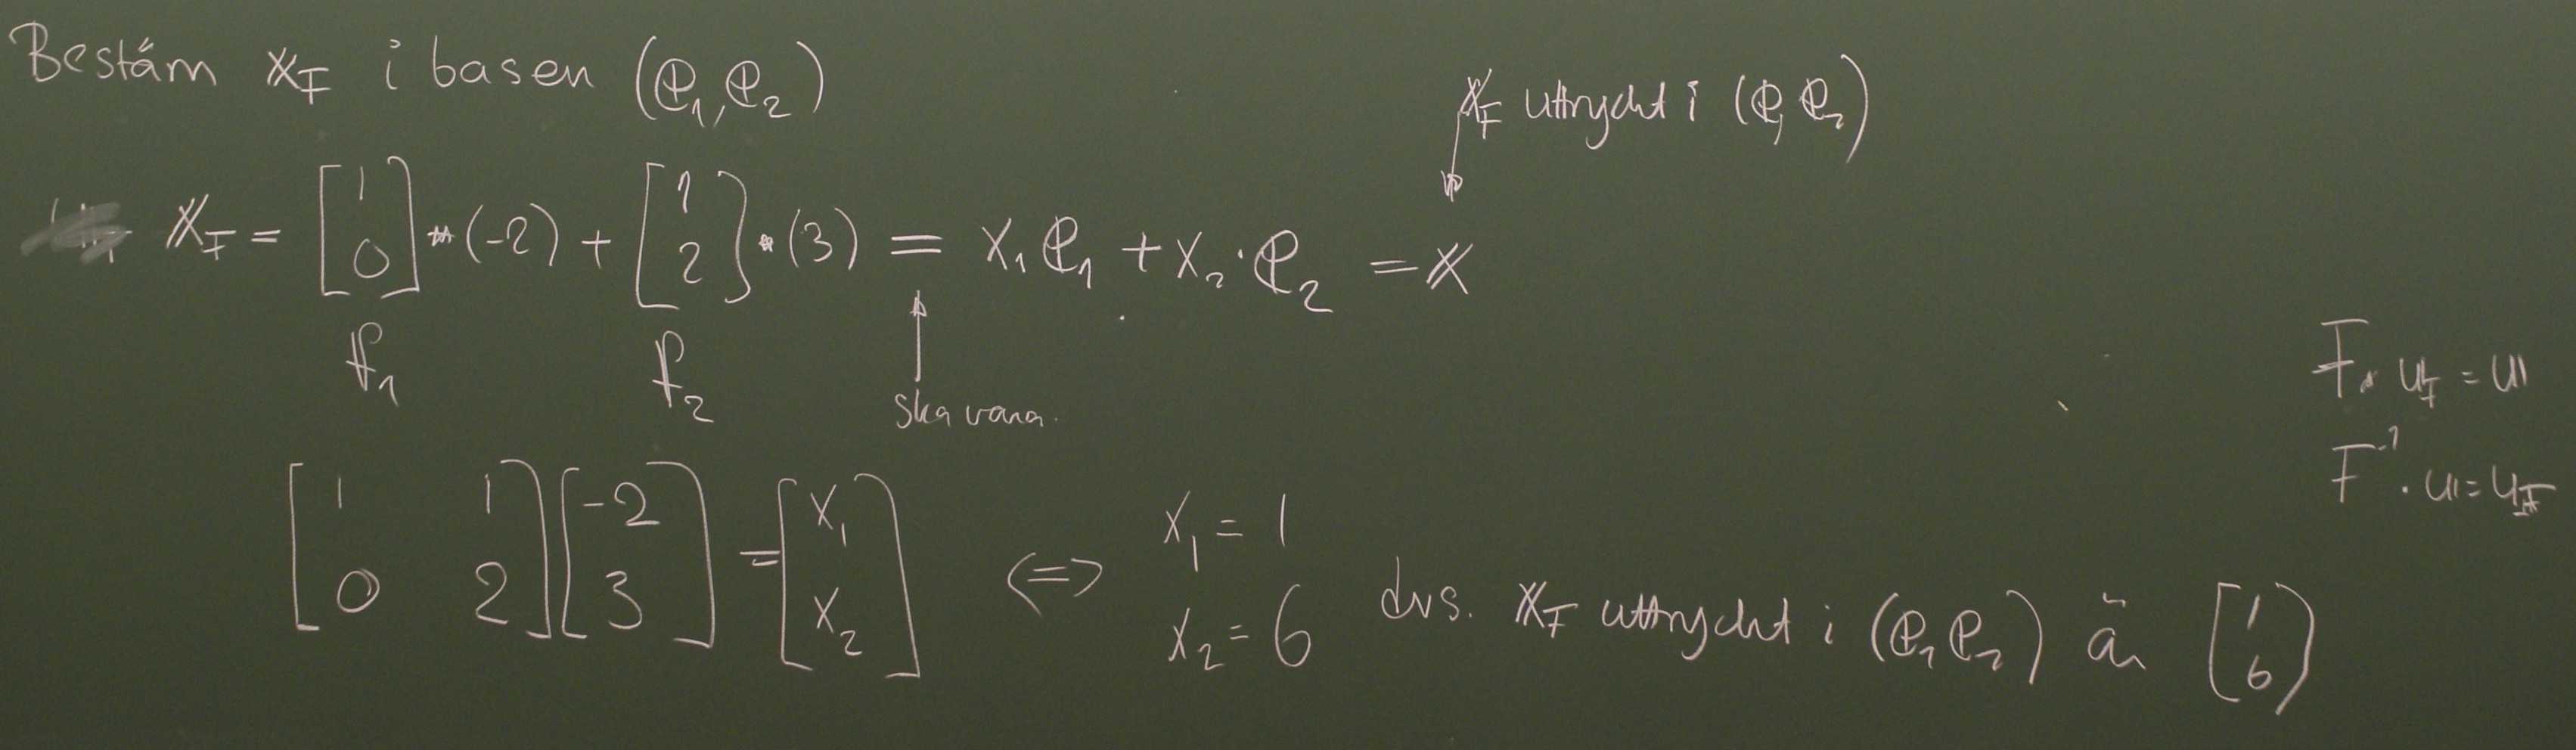 Bestäm x_F i basen (e₁, e₂)
x_F uttryckt i (e₁ e₂)
x_F = [1 0] · (-2) + [1 2] · (3) = x₁ e₁ + x₂ · e₂ = x
f₁ f₂
ska vara.
F · u_F = u
F⁻¹ · u = u_F
[1 1 0 2] [-2 3] = [x₁ x₂] <=> x₁ = 1 x₂ = 6 dvs. x_F uttryckt i (e₁ e₂) är [1 6]